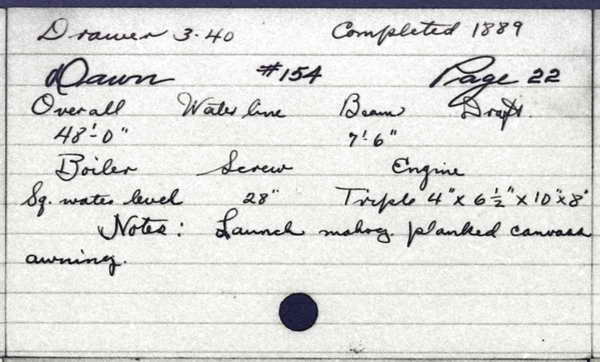 Drawer 3-40 Completed 1889
Dawn #154 Page 22
Overall Water line Beam Draft.
48'-0" 7'-6"
Boiler Screw Engine
Sq. water level 28" Triple 4" x 6 1/2" x 10" x 8"
Notes: Launch mahog. planked canvass
awning.